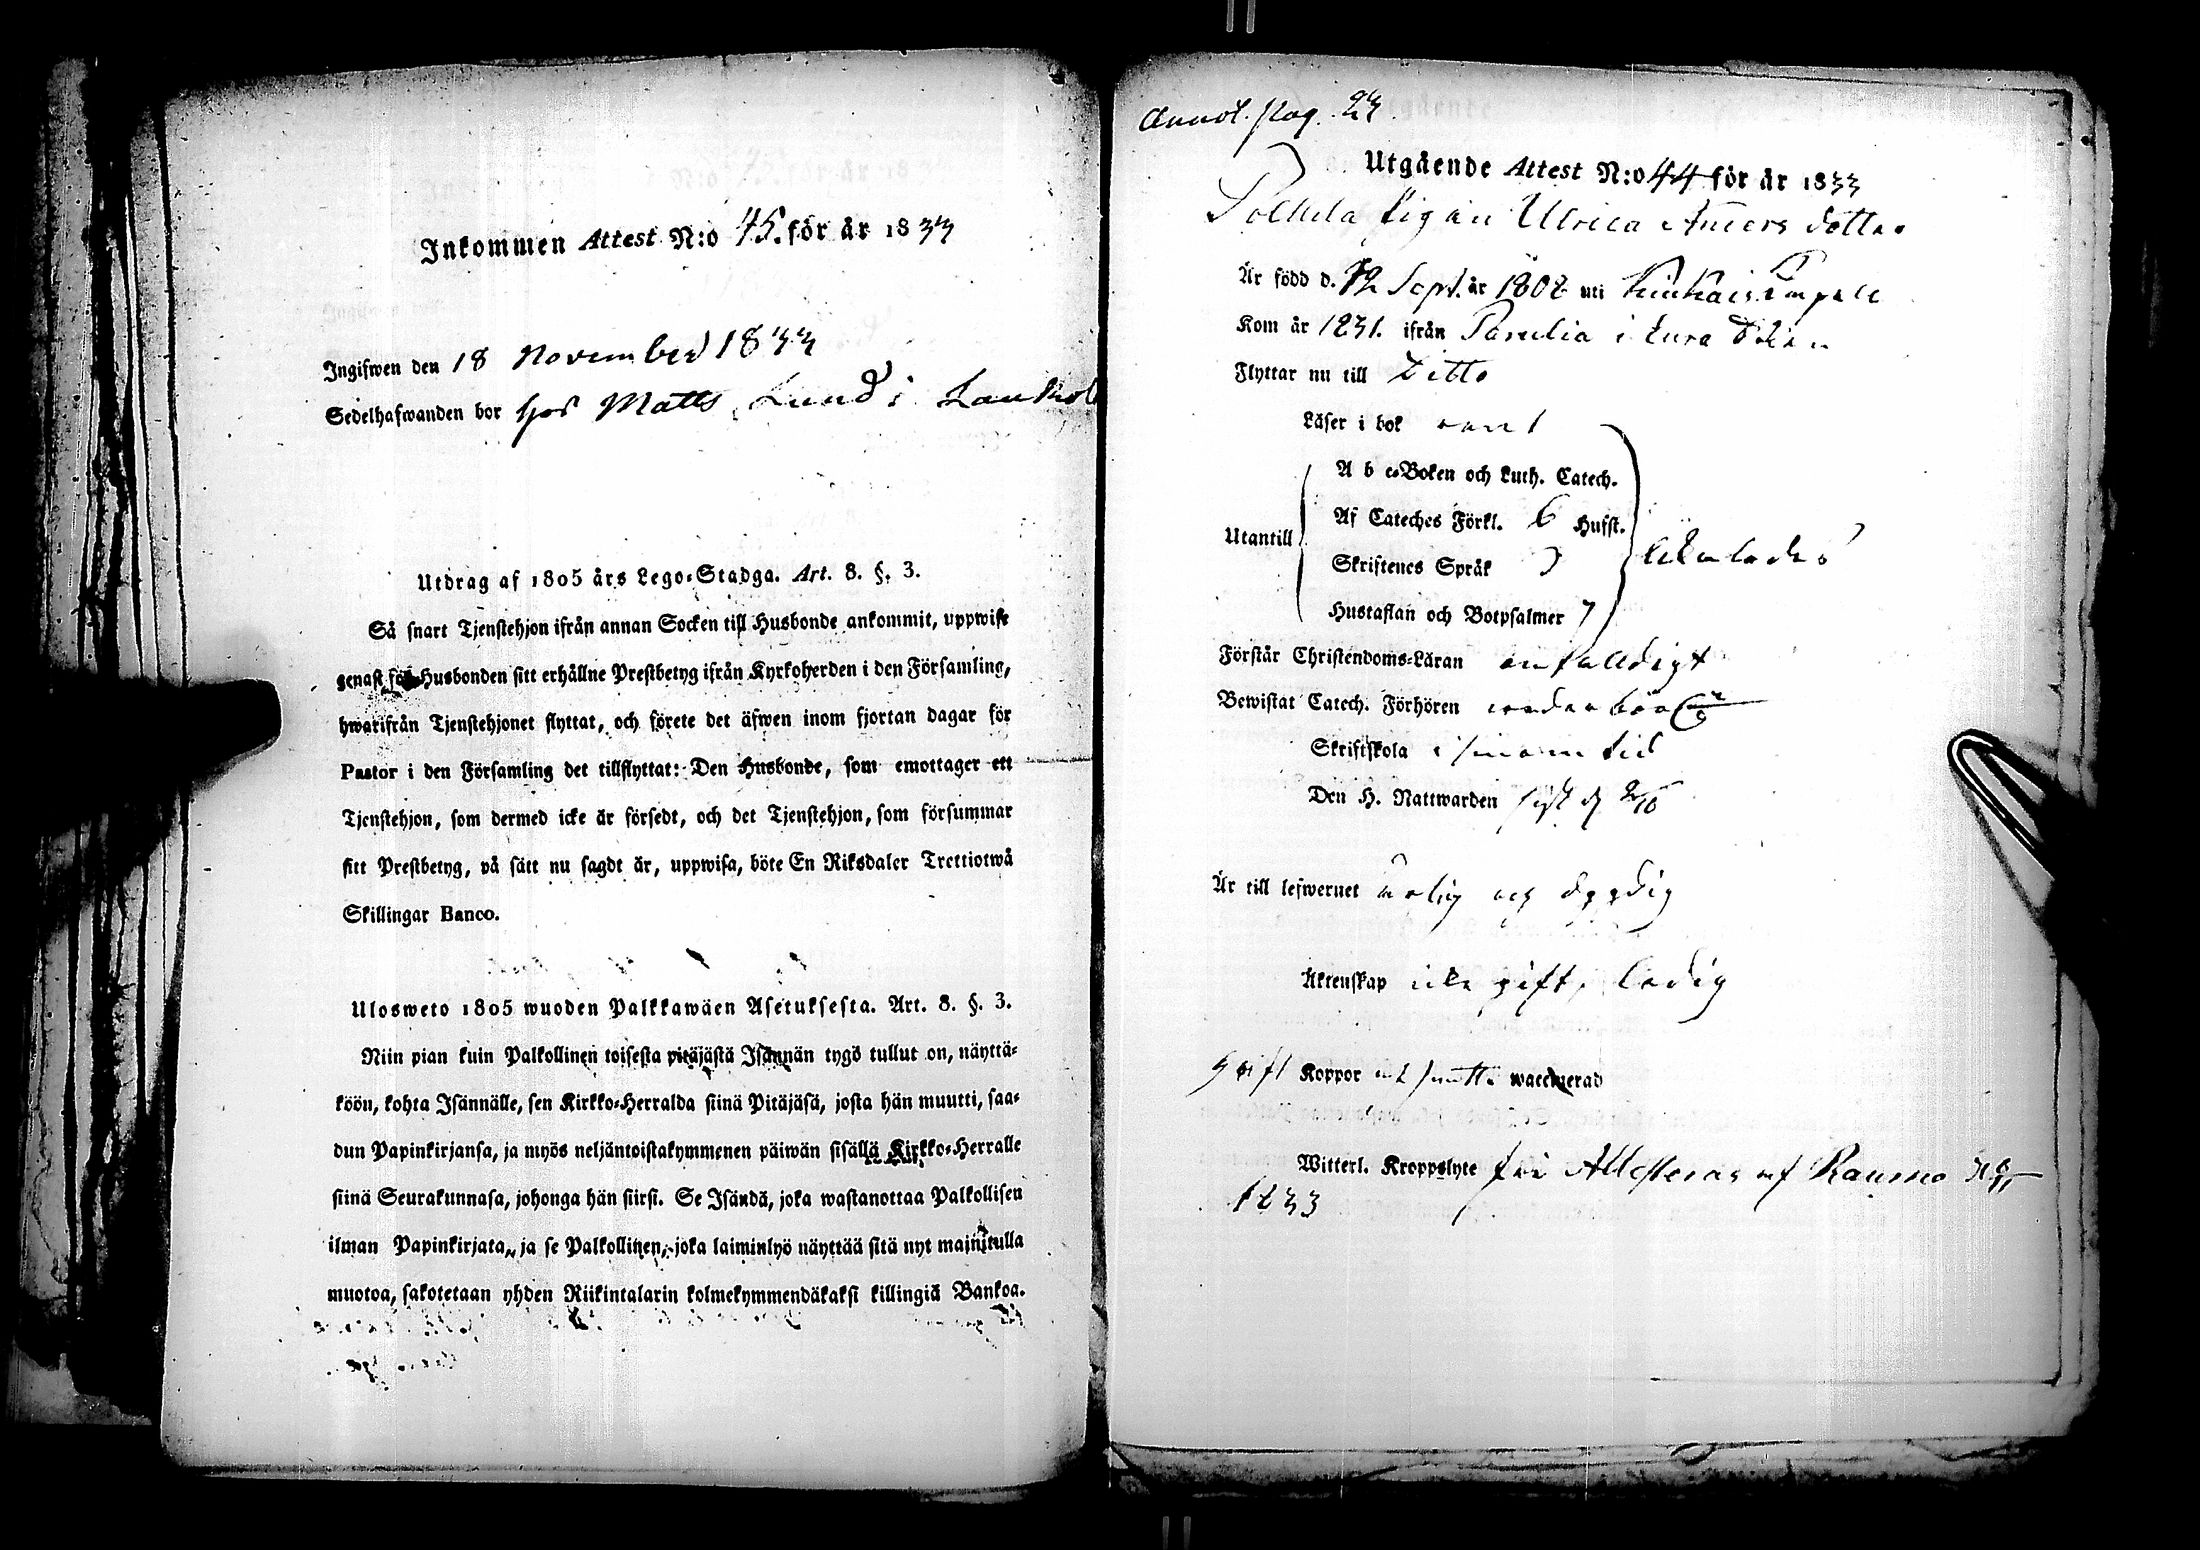 Inkommen Attest N:o 45. för år 1833
Ingifwen den 18 November 1833
Sedelhafwanden bor hos Matts Lund i
Utdrag af 1805 års Lego-Stadga. Art. 8. §. 3.
Så snart Tjenstehjon ifrån annan Socken till Husbonde ankommit, uppwise
genast för Husbonden sitt erhållne Prestbetyg ifrån Kyrkoherden i den Församling,
hwarifrån Tjenstehjonet flyttat, och förete det äfwen inom fjortan dagar för
Pastor i den Församling det tillflyttat: Den Husbonde, som emottager ett
Tjenstehjon, som dermed icke är försedt, och det Tjenstehjon, som försummar
sitt Prestbetyg, på sätt nu sagdt är, uppwisa, böte En Riksdaler Trettiotwå
Skillingar Banco.
Ulosweto 1805 wuoden Palkkawäen Asetuksesta. Art. 8. §. 3.
Niin pian kuin Palkollinen toisesta pitäjästä Isännän tygö tullut on, näyttä-
köön, kohta Isännälle, sen Kirkko-Herralda siinä Pitäjäsä, josta hän muutti, saa-
dun Papinkirjansa, ja myös neljäntoistakymmenen päiwän sisällä Kirkko-Herralle
siinä Seurakunnasa, johonga hän siirsi. Se Isändä, joka wastanottaa Palkollisen
ilman Papinkirjata, ja se Palkollinen, joka laiminlyö näyttää sitä nyt mainitulla
muotoa, sakotetaan yhden Riikintalarin kolmekymmendäkaksi killingiä Bankoa.
Annot. pag. 23
Utgående Attest N:o 44 för år 1833
pigan Ulrica Anders dotter
Är född d. 12 Sept. år 1808 uti
Kom år 1831. ifrån Panelia i Eura Sokn
Flyttar nu till ditto
Läser i bok rent
A b c-Boken och Luth. Catech.
Af Cateches Förkl. 6 Hufst.
Utantill
Skriftenes Språk
Hustaflan och Botpsalmer 7
Förstår Christendoms-Läran enfaldigt
Bewistat Catech. Förhören
Skriftskola i sinom tid
Den H. Nattwarden sist d
Är till lefwernet ärlig och dygdig
Äktenskap icke gift, ledig
haft Koppor waccinerad
Witterl. Kroppslyte fri Attesteras af Raumo
1833